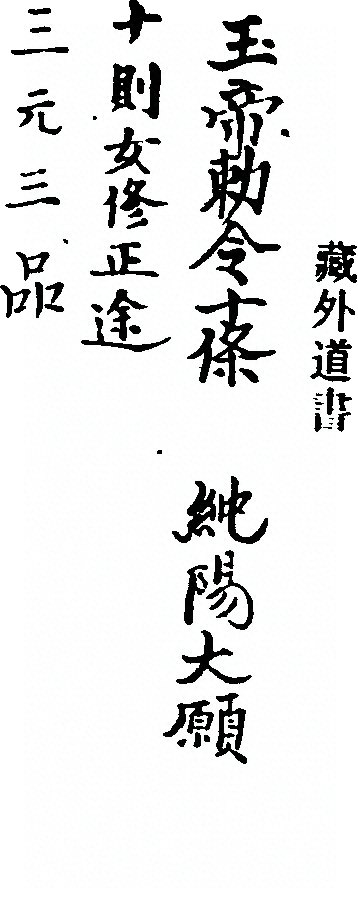 藏外道書
玉帝勅令十條 純陽大願
十則女修正途
三元三品